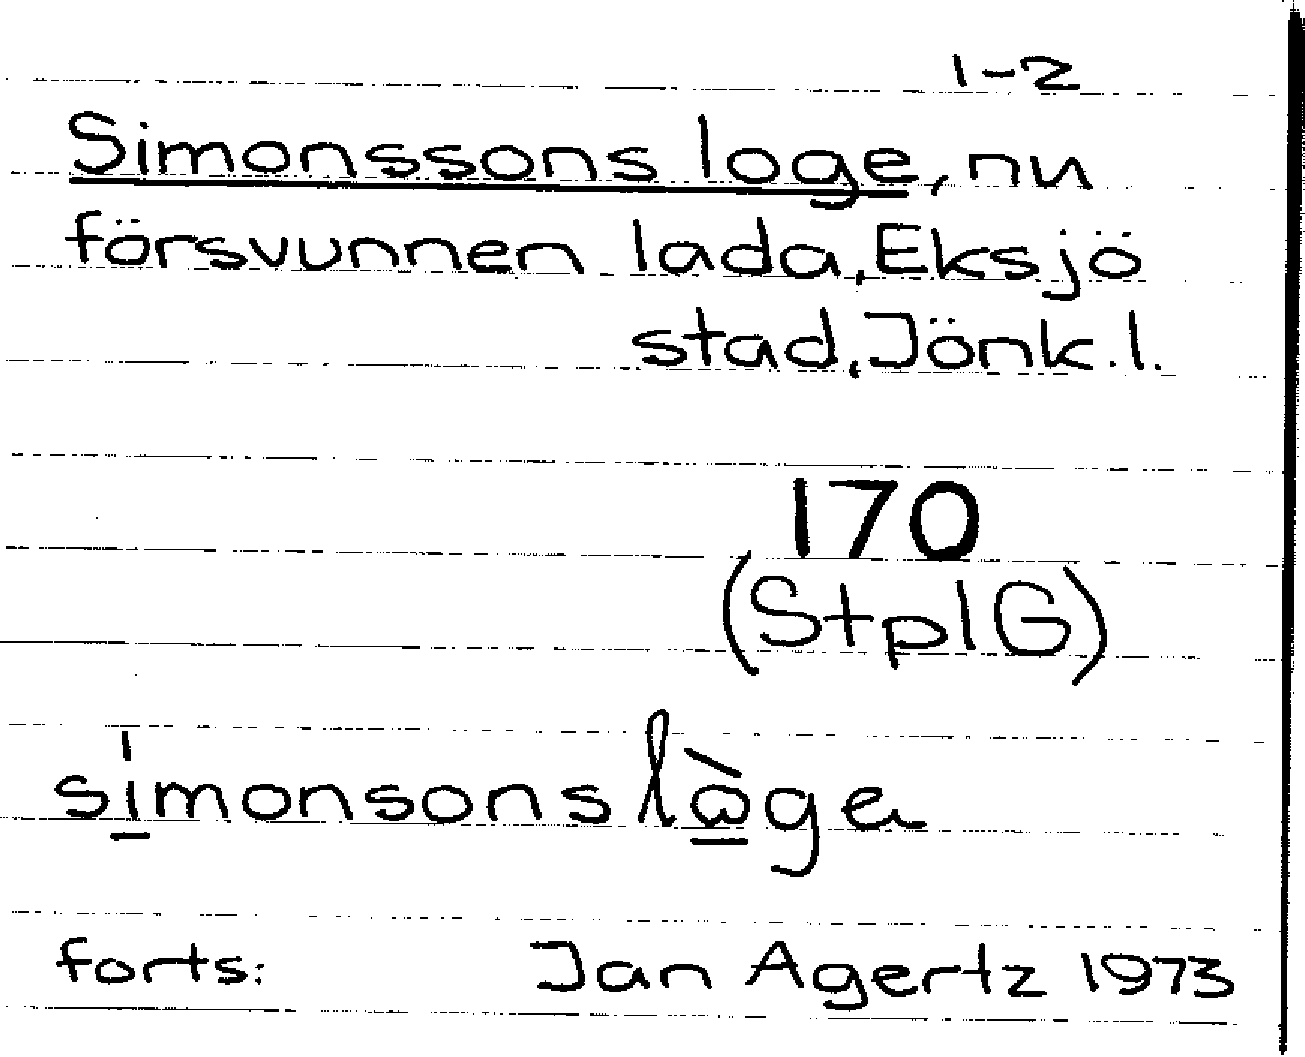 1-2
Simonssons loge, nu
försvunnen lada, Eksjö
stad, Jönk. l.
170
(StplG)
forts: Jan Agertz 1973